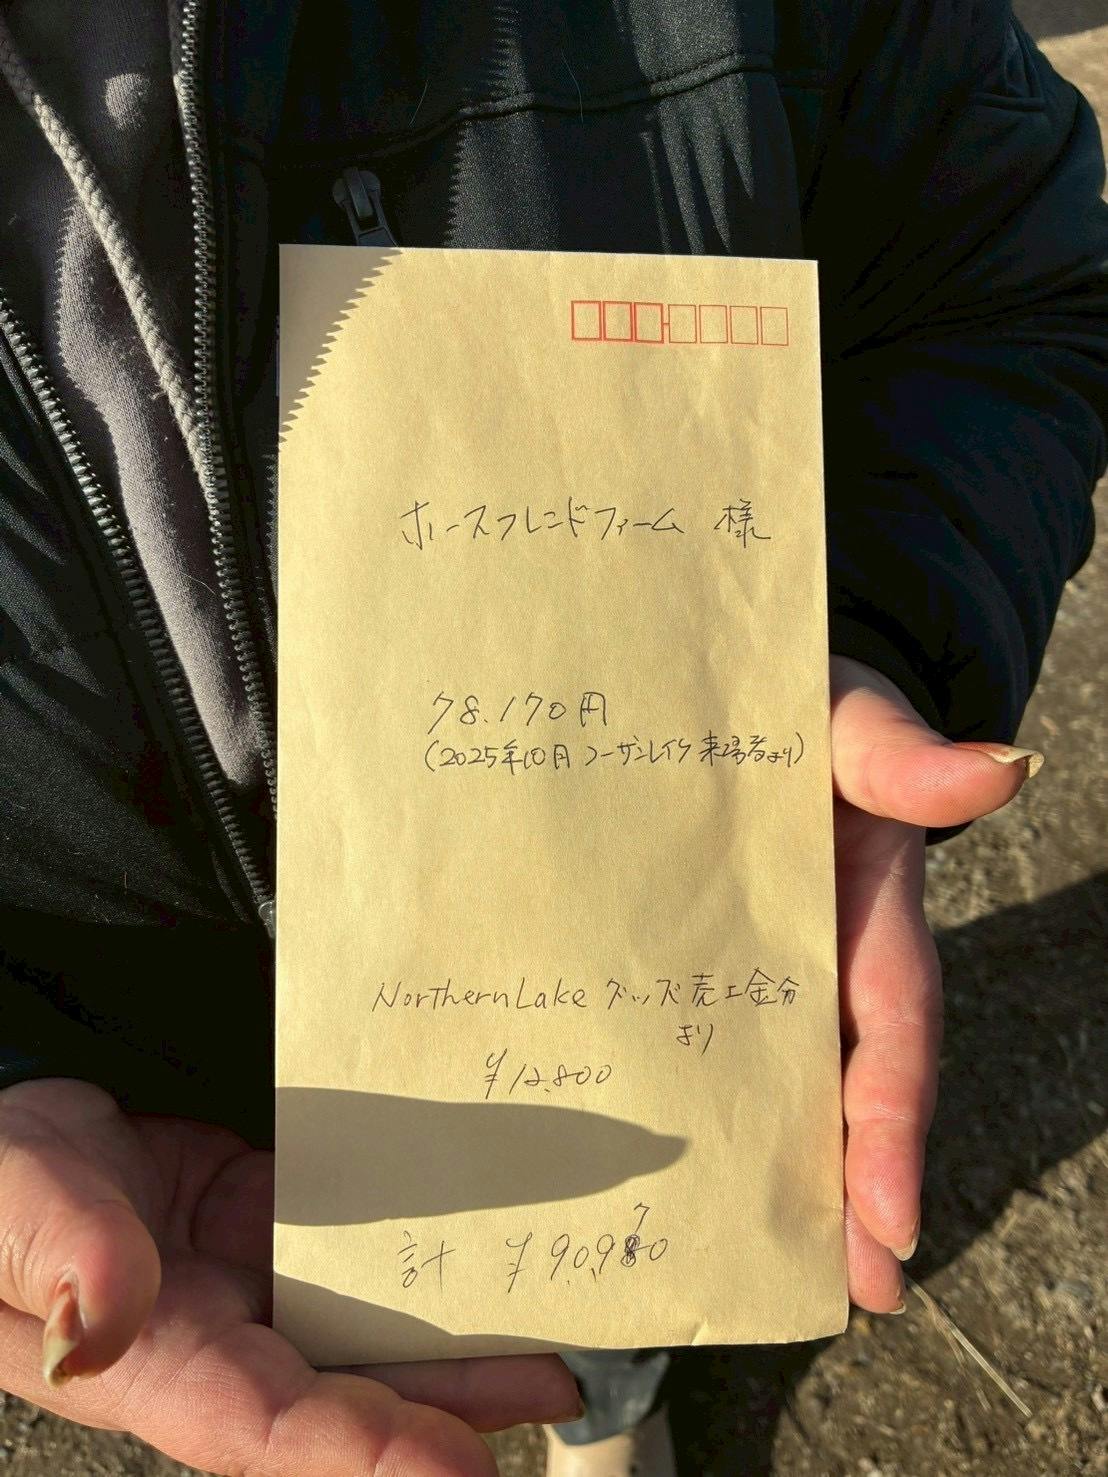 ホースフレンドファーム 様
78.170円
(2025年10月 ノーザンレイク 来場者より)
NorthernLake グッズ売上金分
より
¥12,800
計 ¥90,970